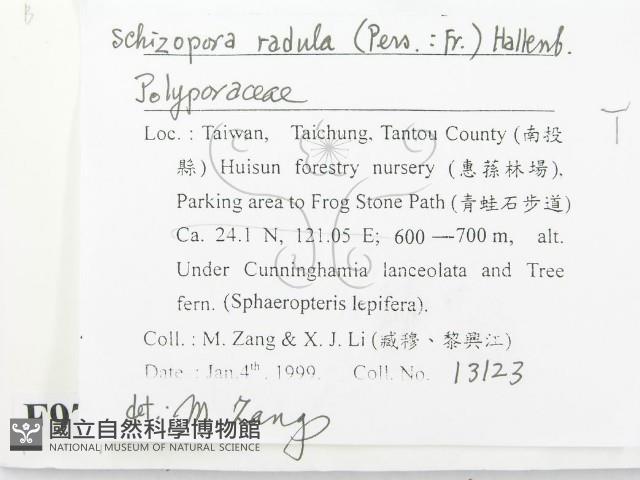 B
Schizopora radula (Pers. : Fr.) Hallenb.
Polyporaceae
T
Loc. : Taiwan, Taichung, Tantou County (南投
縣) Huisun forestry nursery (惠蓀林場),
Parking area to Frog Stone Path (青蛙石步道)
Ca. 24.1 N, 121.05 E; 600—700 m, alt.
Under Cunninghamia lanceolata and Tree
fern. (Sphaeropteris lepifera).
Coll. : M. Zang & X. J. Li (臧穆、黎興江)
Date : Jan.4th. 1999. Coll. No. 13123
det.: M. Zang
國立自然科學博物館
NATIONAL MUSEUM OF NATURAL SCIENCE